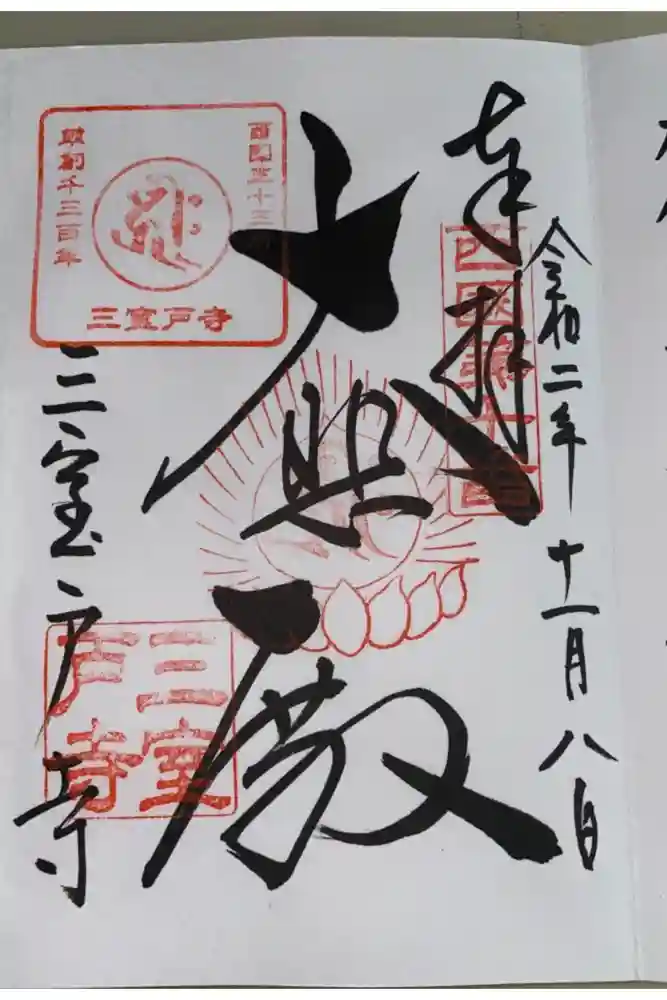 令和二年 十一月八日
奉拝
西國第十番
大悲殿
西国三十三
草創千三百年
三室戸寺
三室戸寺
三室
戸寺